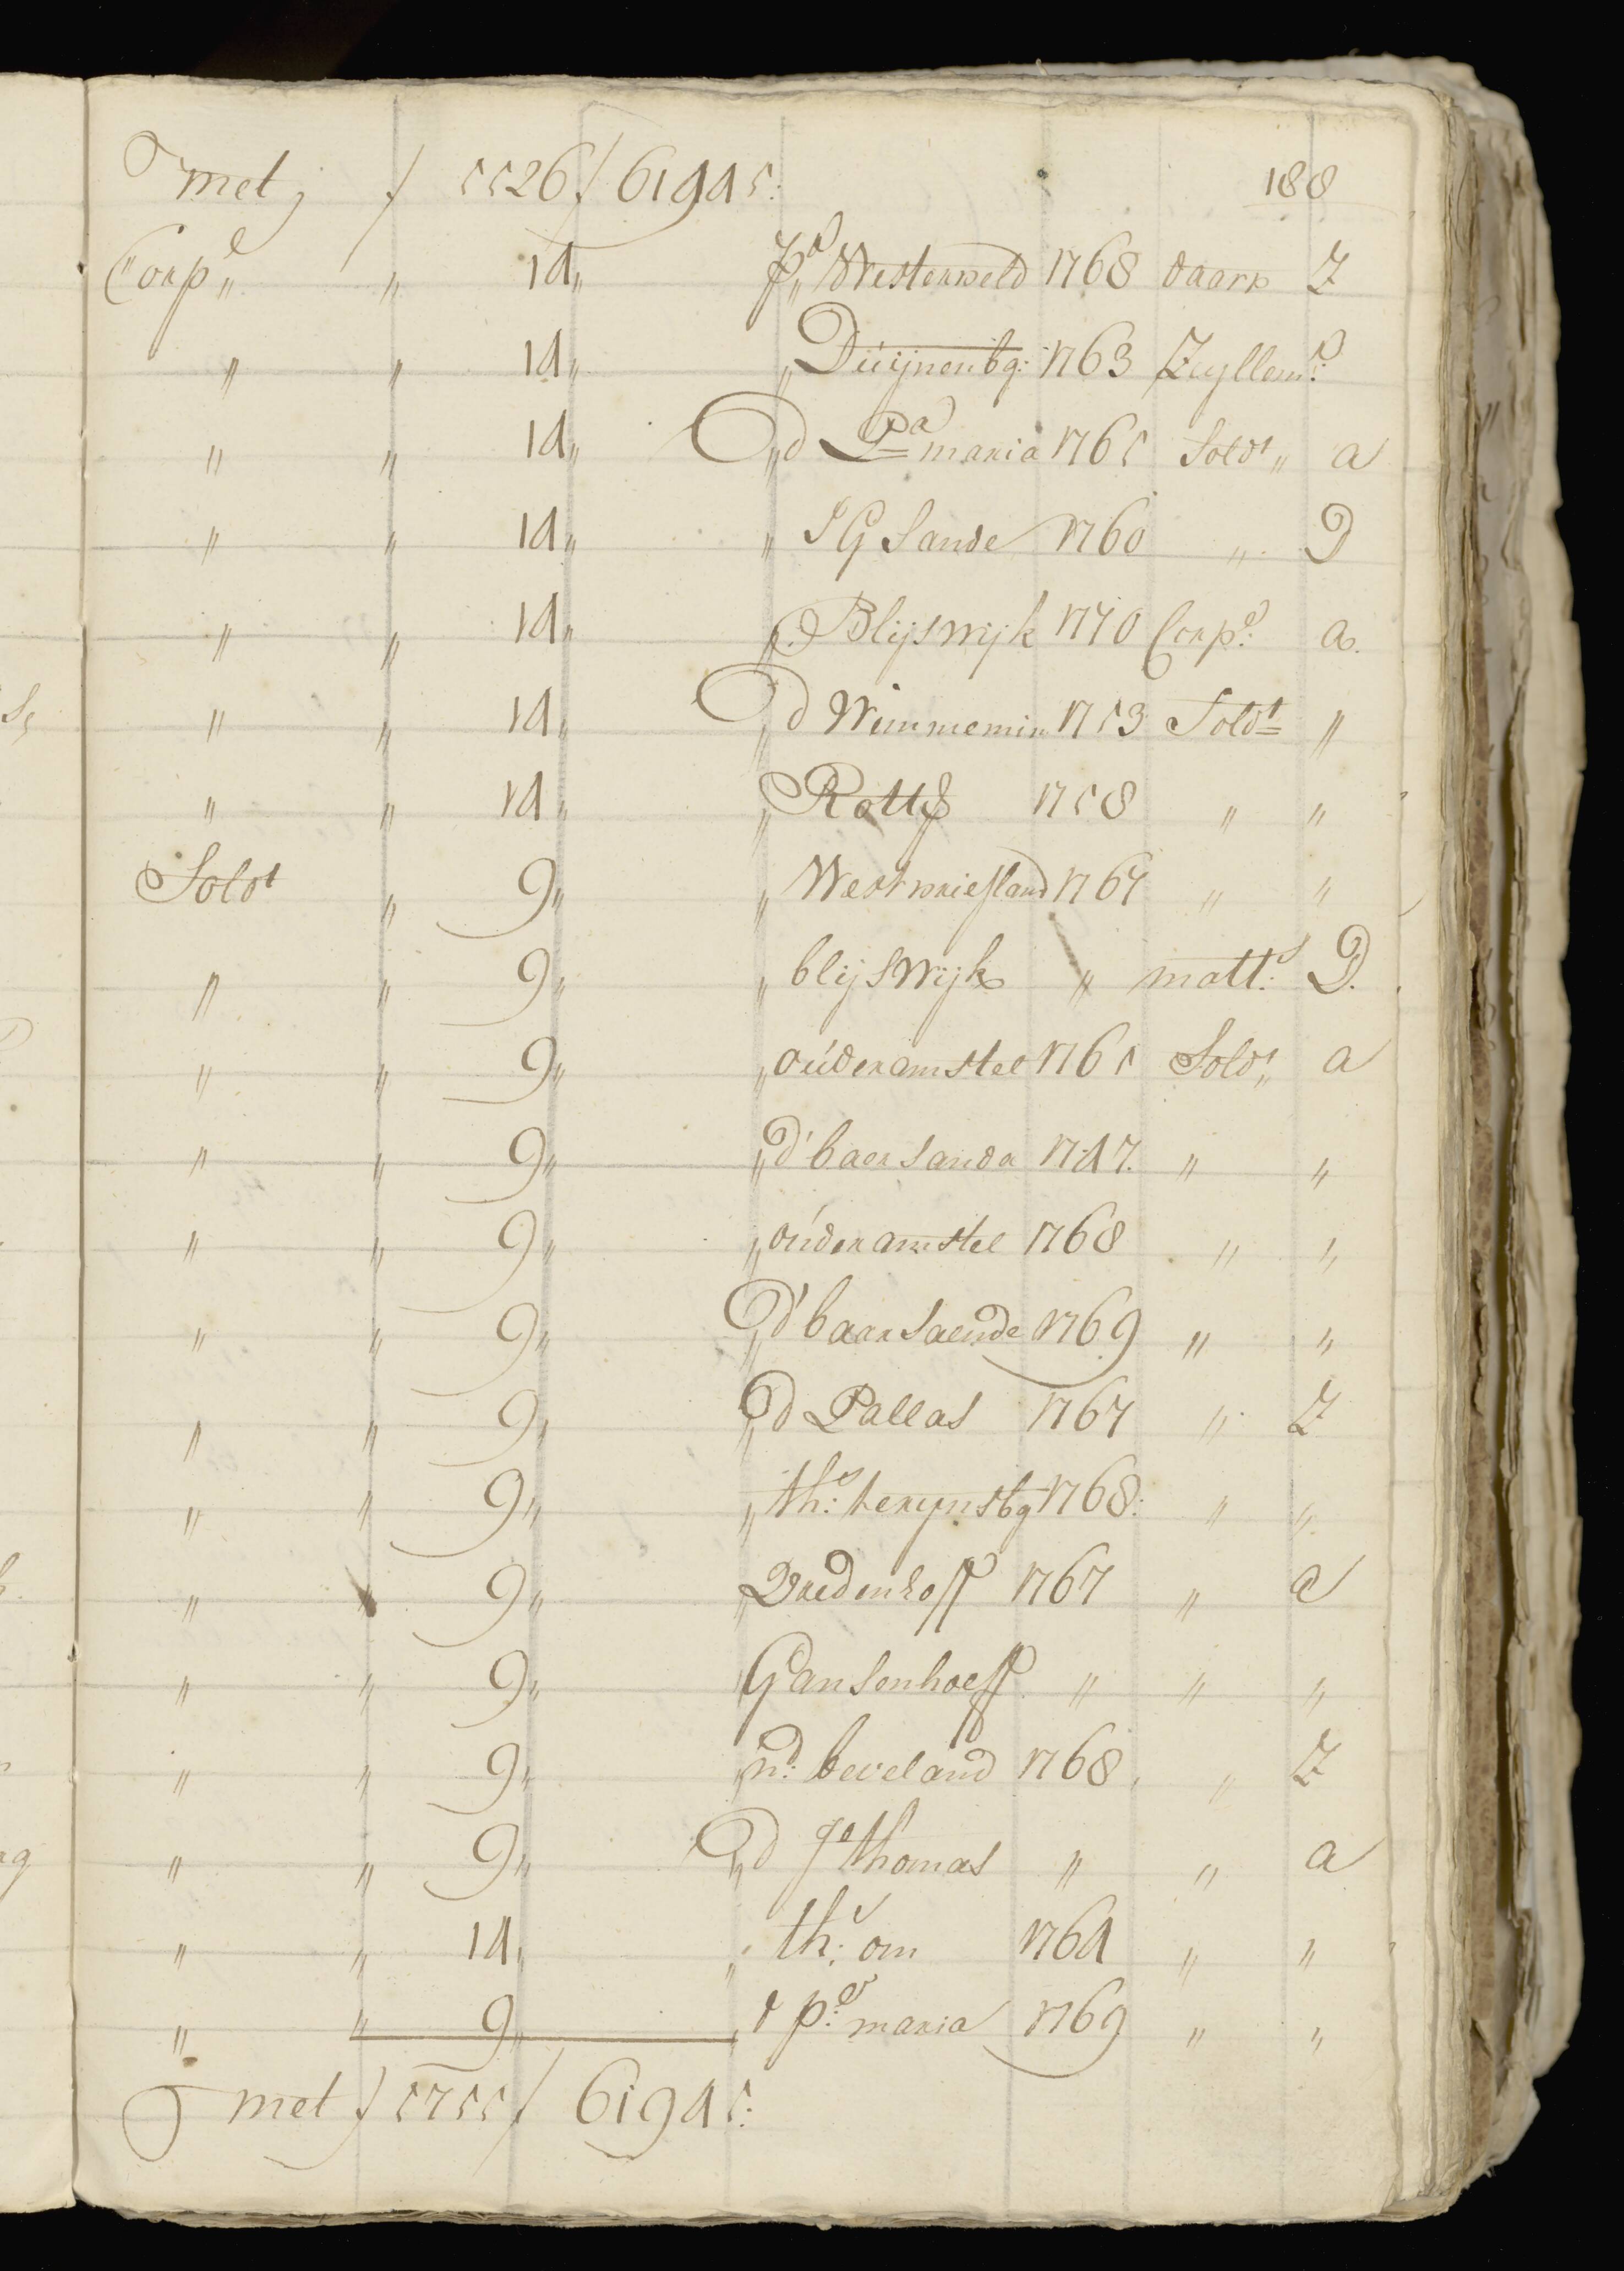 met j / 5526 / 61945: 188
Corp.l " 14" p.r Westerveld 1768 vaarr Z
" " 14" " Duijnenbg: 1763 Zeyllem.r
" " 14" " d P.a maria 1765 Soldt " a
" " 14" " S G Sande 1760 " D
" " 14" " Blijswijk 1770 Corp.l a.
" " 14" " d Wimmemin 1753 Soldt "
" " 14" " Rotts 1758 " "
Soldt " 9" " Westvriesland 1767 " "
" " 9" " blijswijk " matt.s D.
" " 9" " ouderamstel 1765 Soldt " a
" " 9" " d' baersanda 1747. " "
" " 9" " ouderamstel 1768 " "
" " 9" " d' baarsaende 1769 " "
" " 9" " d Pallas 1767 " Z
" " 9" " th.s terynsbg 1768: " "
" " 9" " Vredenhoff 1767 " a
" " 9" " Gansenhoeff " " "
" " 9" " n.d beveland 1768 " Z
" " 9" " d Je thomas " " a
" " 14" " th.s om 1764 " "
" " 9" " d p.s maria 1769 " "
met / 5755 / 61945: